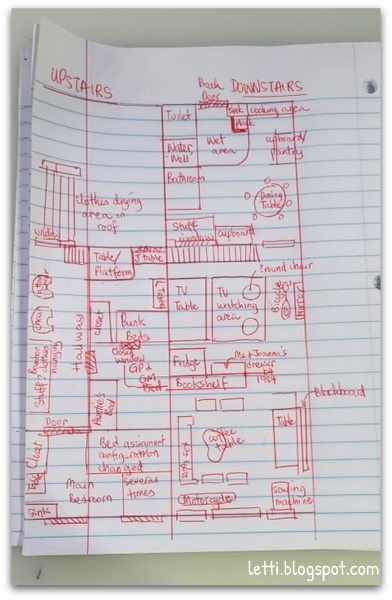 UPSTAIRS
Back
Door
DOWNSTAIRS
Toilet
Sink
cooking area
Wet
area
Water
Well
cupboard/
pantry
Bathroom
Dining
Table
Clothes drying
area on
roof
window
Stuff
window
cupboard
Table/
Platform
Table
TV
Table
TV
watching
area
?round chair
Bicycle
Mirror
chair
Hallway
closet
Bunk
Beds
closet
window
GP &
GM
Bed
Fridge
Me & Joanna's
dresser
1984
Bookshelf
Blackboard
Stuff? clothes
hanging
Auntie's
Bed
Door
Closet
Main
Bedroom
Sink
Bed assignment
configuration
changed
Several
times
Sofa set
coffee
table
Table
Motorcycle
Sewing
machine
letti.blogspot.com